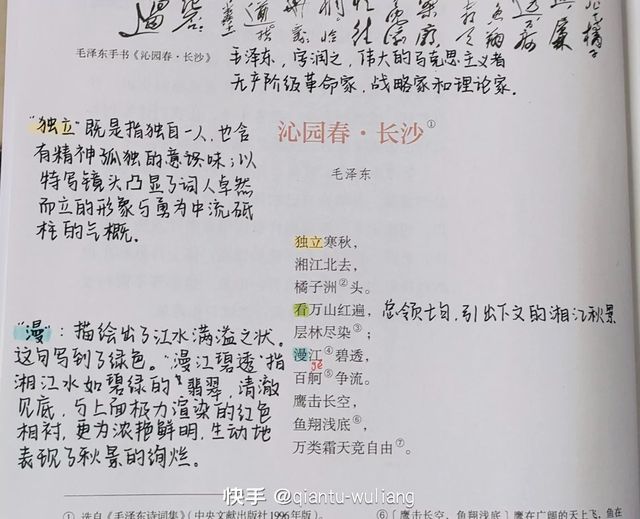 毛泽东手书《沁园春·长沙》
毛泽东，字润之，伟大的马克思主义者
无产阶级革命家，战略家和理论家.
沁园春·长沙①
毛泽东
"独立"既是指独自一人，也含
有精神孤独的意识味；以
特写镜头凸显了词人卓然
而立的形象与勇为中流砥
柱的气概.
独立寒秋，
湘江北去，
橘子洲②头。
看万山红遍，总领七句，引出下文的湘江秋景
层林尽染③；
漫江④碧透，
gě
百舸⑤争流。
鹰击长空，
鱼翔浅底⑥，
万类霜天竞自由⑦。
"漫"：描绘出了江水满溢之状。
这句写到了绿色。"漫江碧透"指
湘江水如碧绿的翡翠，清澈
见底，与上面极力渲染的红色
相衬，更为浓艳鲜明，生动地
表现了秋景的绚烂。
快手 @qiantu-wuliang
① 选自《毛泽东诗词集》（中央文献出版社1996年版）。
⑥〔鹰击长空，鱼翔浅底〕鹰在广阔的天上飞，鱼在